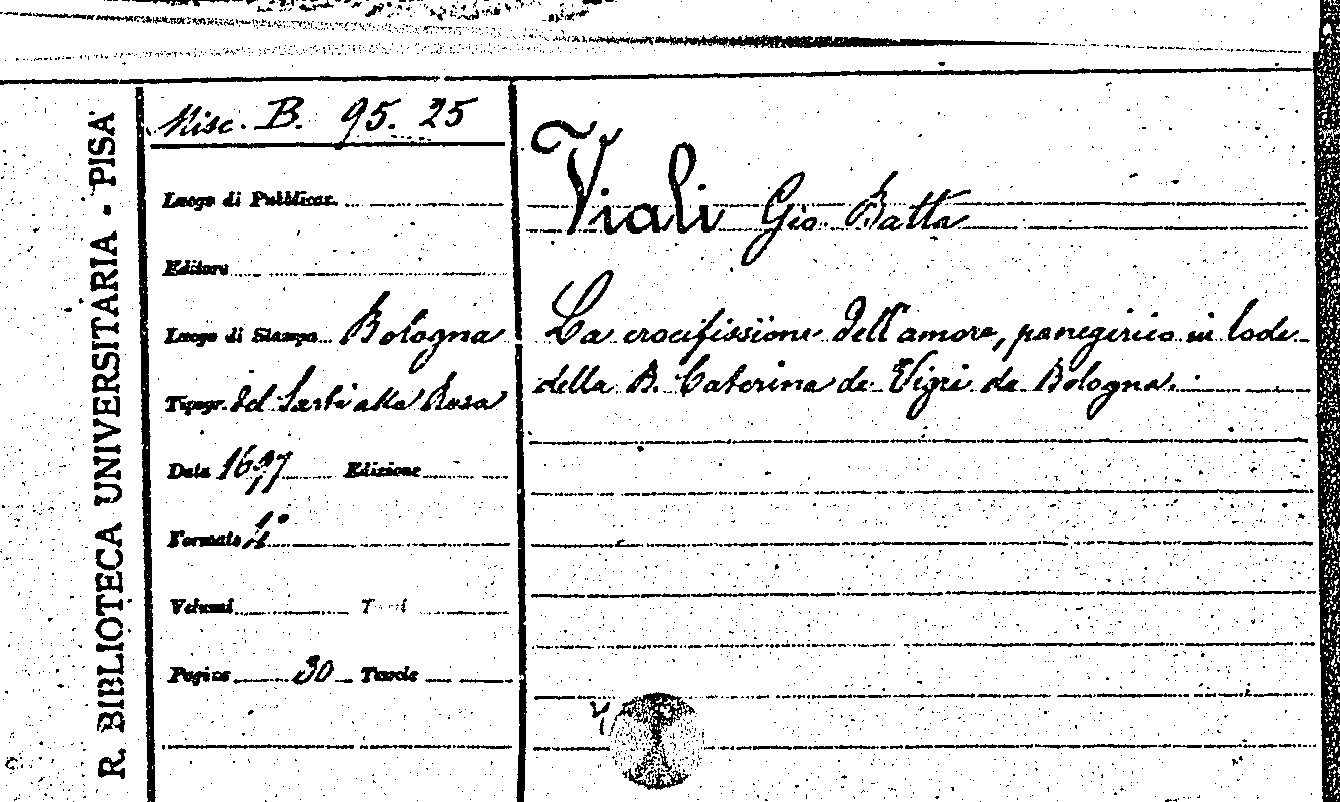 R. BIBLIOTECA UNIVERSITARIA - PISA
Misc. B. 95. 25
Luogo di Pubblicaz.
Editore
Luogo di Stampa Bologna
Tipogr. del Sarti alla Rosa
Data 1697 Edizione
Formato 4°
Volumi Tomi
Pagine 30 Tavole
Viali Gio. Batta
La crocifissione dell'amore, panegirico in lode
della B. Caterina de Vigri da Bologna.